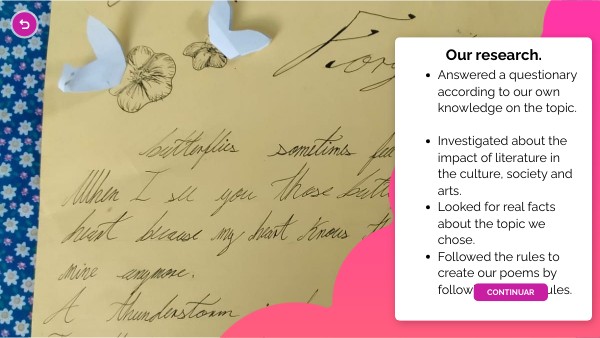 butterflies sometimes
When I see you those
heart because my heart knows
mine anymore.
A thunderstorm
Our research.
Answered a questionary
according to our own
knowledge on the topic.
Investigated about the
impact of literature in
the culture, society and
arts.
Looked for real facts
about the topic we
chose.
Followed the rules to
create our poems by
CONTINUAR